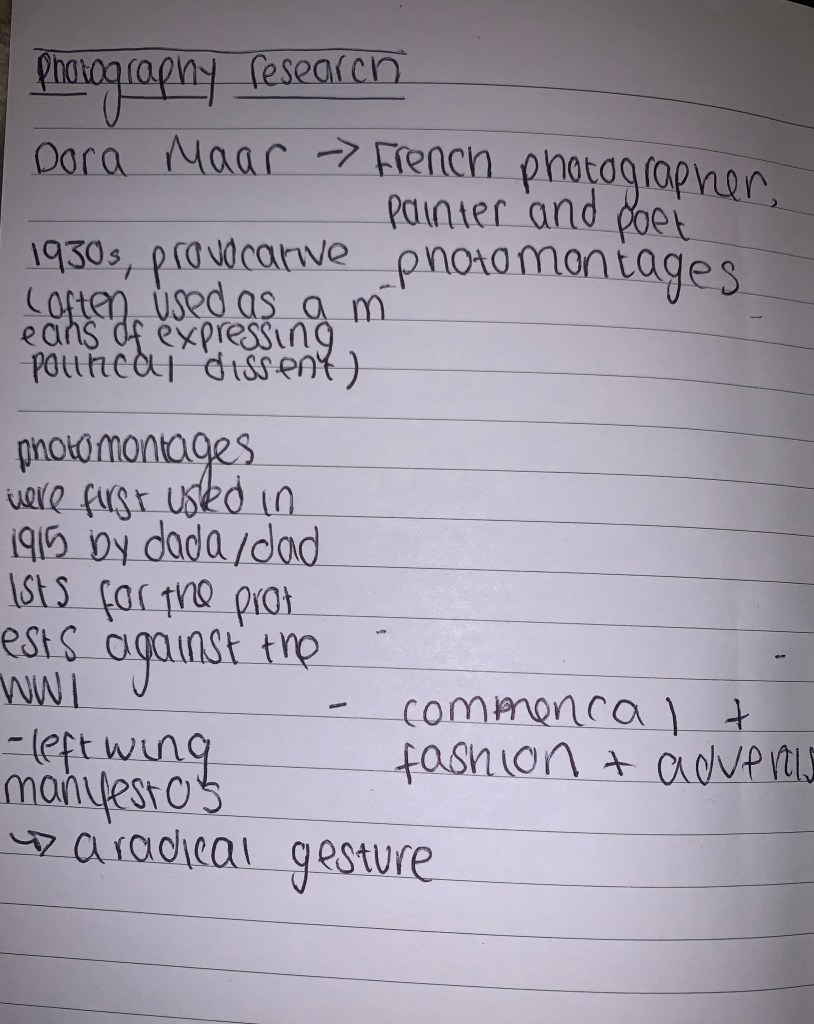 photography research
Dora Maar → French photographer,
painter and poet
1930s, provocative photomontages
(often used as a m
eans of expressing
political dissent)
photomontages
were first used in
1915 by dada/dad
ists for the prot
ests against the
WW1
- commercal +
-left wing
fashion + advertis
manifestos
→ a radical gesture